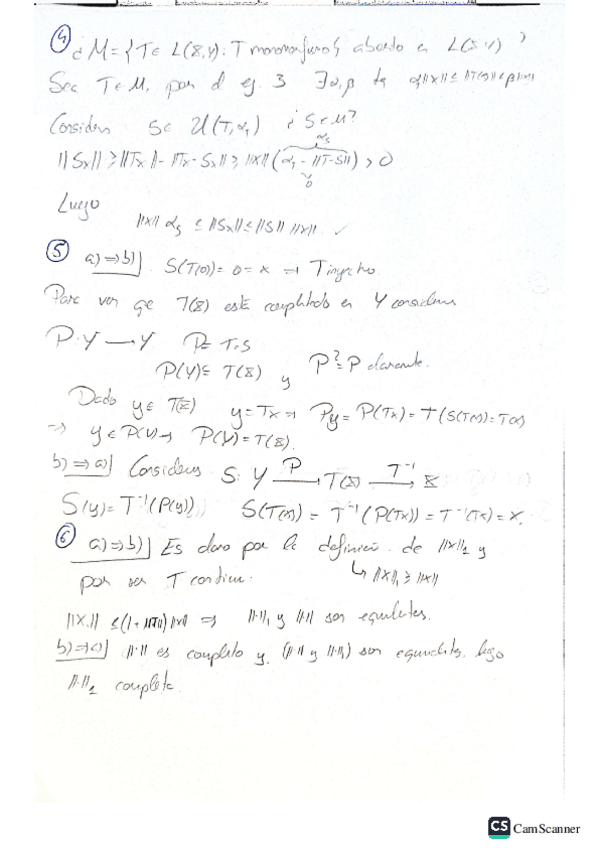 ④ ¿ M = { T ∈ L(X,Y) : T monomorfismo } abierto en L(X,Y) ?
Sea T ∈ M, por el ej. 3 ∃ α, β tq α||x|| ≤ ||T(x)|| ≤ β||x||
Considero S ∈ U(T, α) ¿ S ∈ M?
||Sx|| ≥ ||Tx|| - ||Tx - Sx|| ≥ ||x|| (α - ||T-S||) > 0
αs
0
Luego
||x|| αs ≤ ||Sx|| ≤ ||S|| ||x|| ✓
⑤ a) ⇒ b) S(T(x)) = 0 = x ⇒ T inyectivo.
Para ver que T(X) está complementado en Y considero
P: Y → Y P = T∘S
P(Y) ⊆ T(X) y P² = P claramente.
Dado y ∈ T(X) y = Tx ⇒ Py = P(Tx) = T(S(Tx)) = T(x)
⇒ y ∈ P(Y) ⇒ P(Y) = T(X).
b) ⇒ a) Considero S: Y →P T(X) →T⁻¹ X
S(y) = T⁻¹(P(y)) S(T(x)) = T⁻¹(P(Tx)) = T⁻¹(Tx) = x.
⑥ a) ⇒ b) Es claro por la definición de ||x||₁ y
↳ ||x||₁ ≥ ||x||
por ser T continua:
||x||₁ ≤ (1 + ||T||) ||x|| ⇒ ||·||₁ y ||·|| son equivalentes.
b) ⇒ a) ||·|| es completo y (||·|| y ||·||₁) son equivalentes, luego
||·||₁ completa.
CS CamScanner